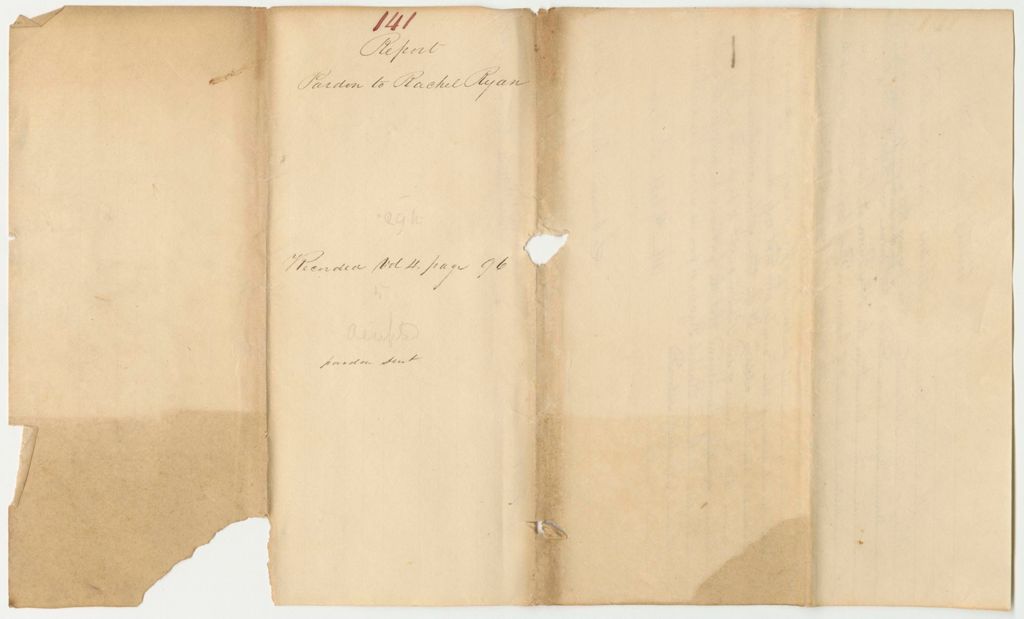 141
Report
Pardon to Rachel Ryan
Recorded Vol 4. page 96
pardon sent